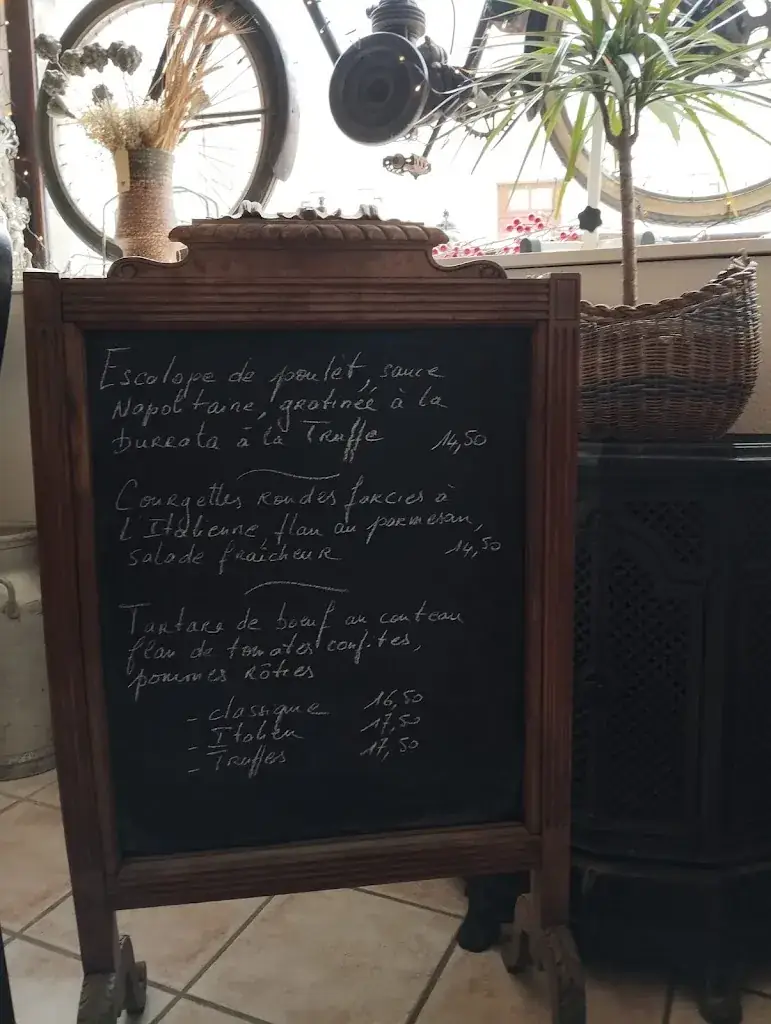 Escalope de poulet, sauce
Napolitaine, gratinée à la
burrata à la Truffe 14,50
Courgettes rondes farcies à
l'Italienne, flan au parmesan,
salade fraîcheur 14,50
Tartare de boeuf au couteau
flan de tomates confites,
pommes rôties
- classique 16,50
- Italien 17,50
- Truffes 17,50